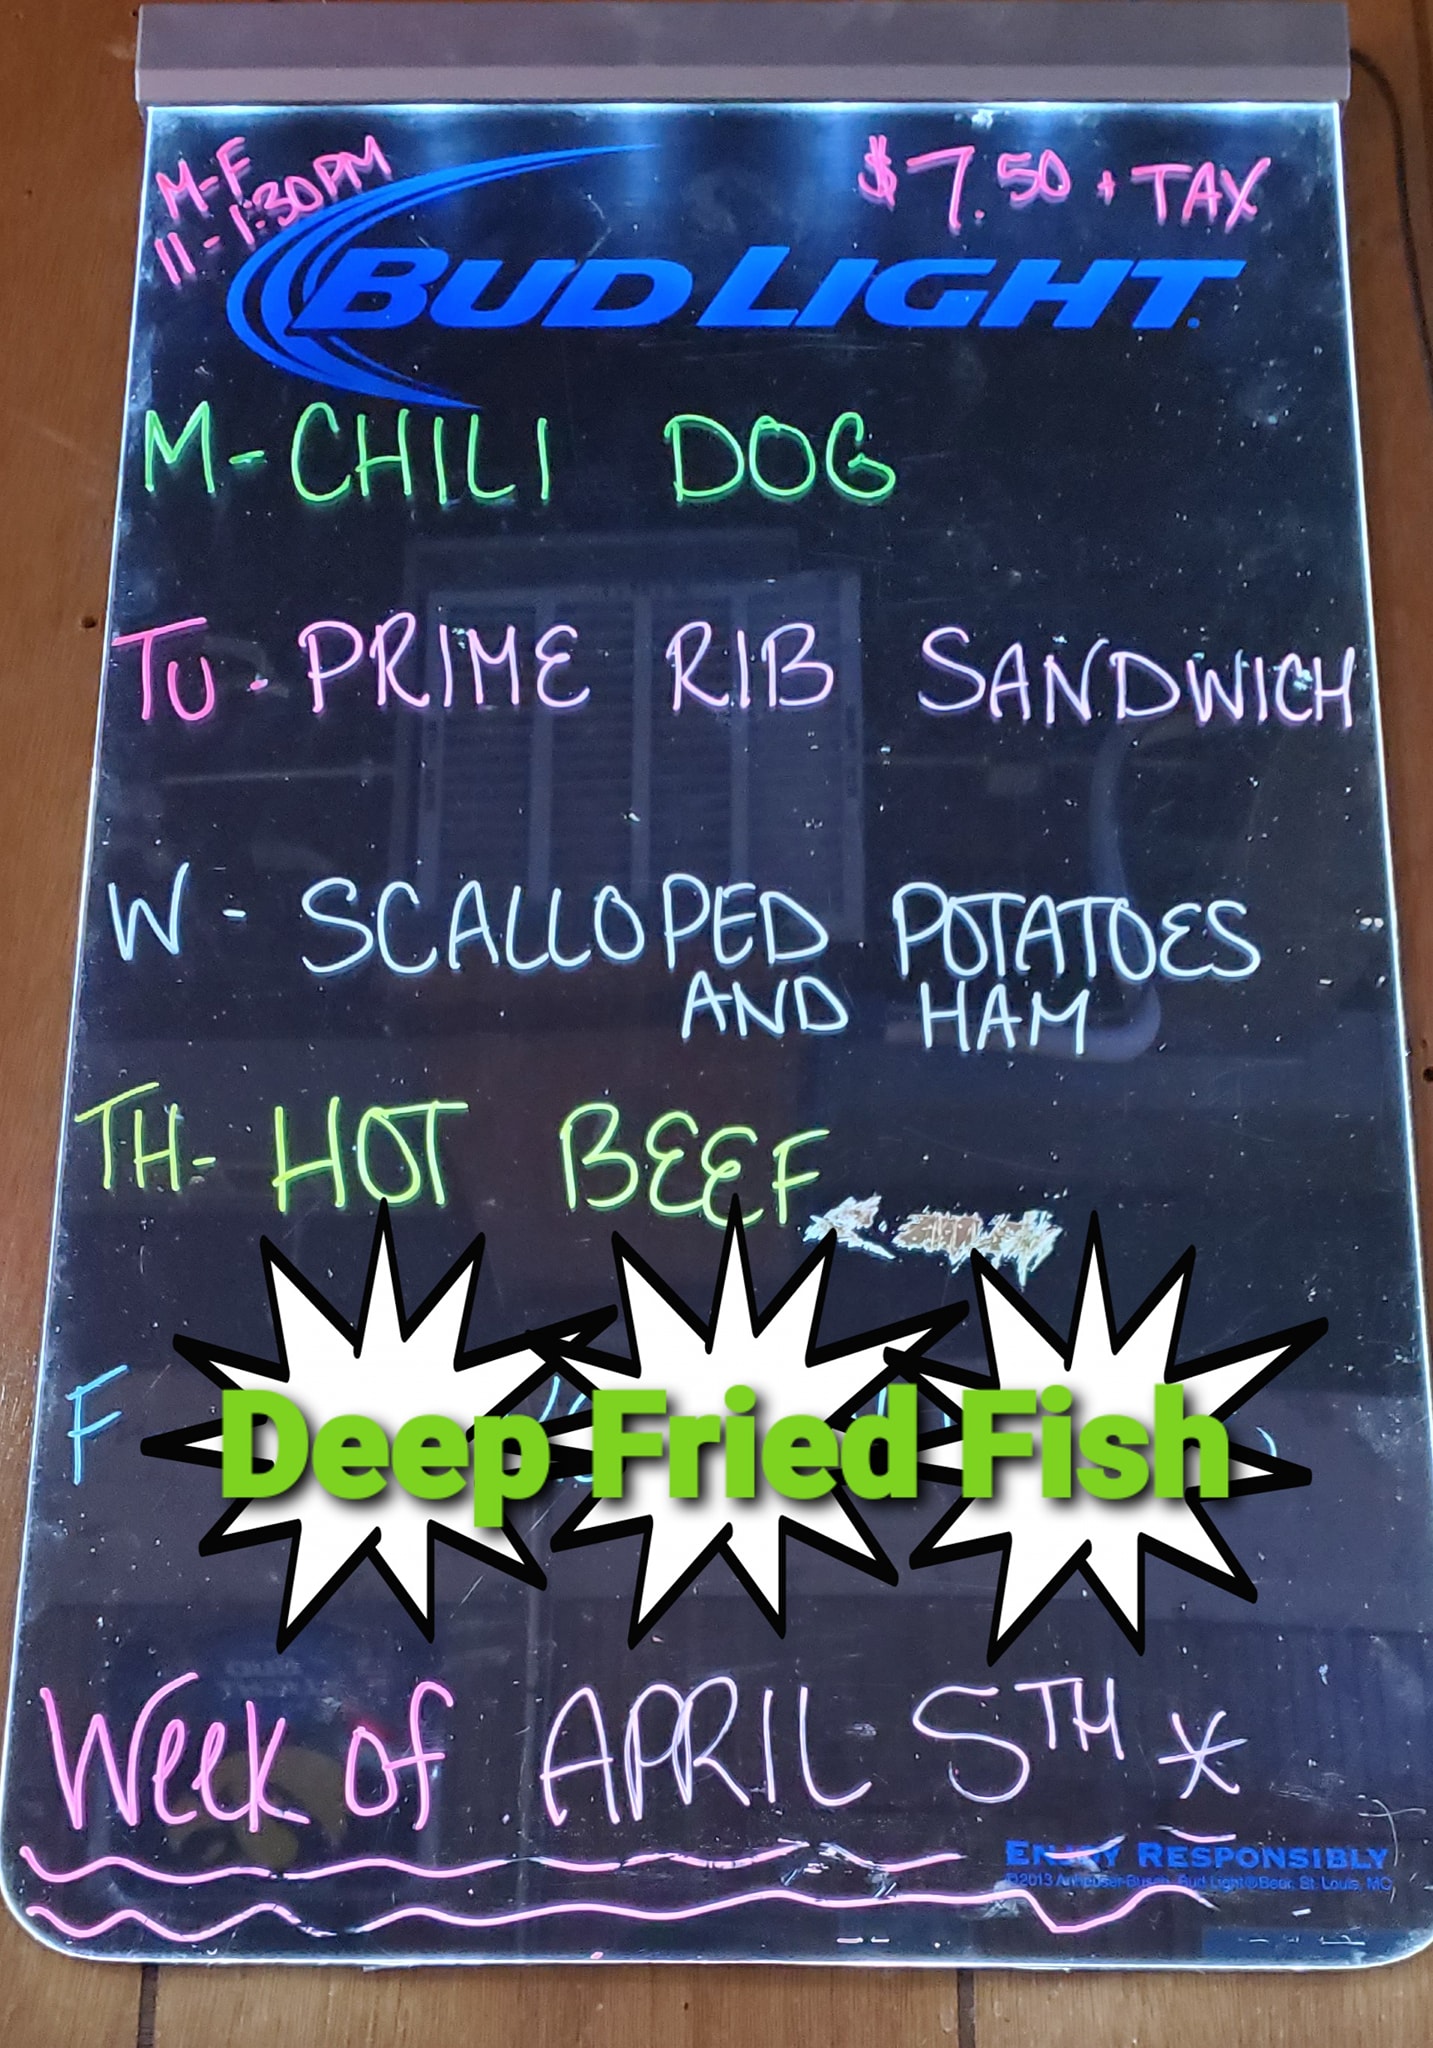 M-F
11-1:30PM
$7.50 + TAX
BUD LIGHT
M-CHILI DOG
TU- PRIME RIB SANDWICH
W - SCALLOPED POTATOES
AND HAM
TH- HOT BEEF
F Deep Fried Fish
Week of APRIL 5TH *
ENJOY RESPONSIBLY
©2013 Anheuser-Busch, Bud Light® Beer, St. Louis, MO